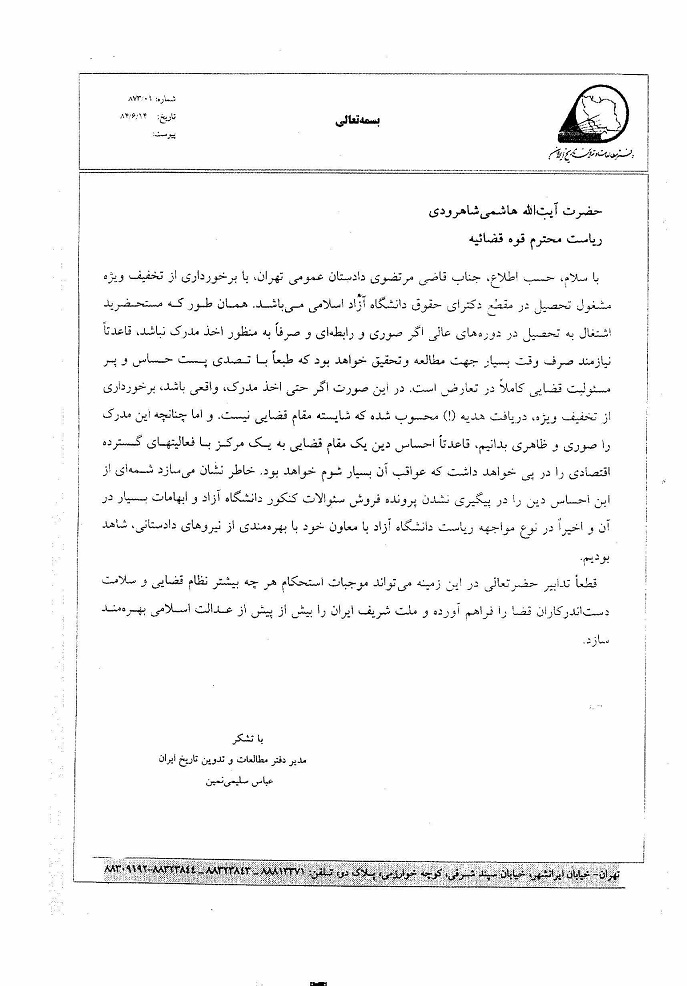 شماره: ۸۷۳/۰۱
تاریخ: ۸۴/۶/۱۴
پیوست:
بسمه‌تعالی
دفتر مطالعات و تدوین تاریخ ایران
حضرت آیت‌الله هاشمی‌شاهرودی
ریاست محترم قوه قضائیه
با سلام، حسب اطلاع، جناب قاضی مرتضوی دادستان عمومی تهران، با برخورداری از تخفیف ویژه
مشغول تحصیل در مقطع دکترای حقوق دانشگاه آزاد اسلامی می‌باشد. همان طور که مستحضرید
اشتغال به تحصیل در دوره‌های عالی اگر صوری و رابطه‌ای و صرفاً به منظور اخذ مدرک نباشد، قاعدتاً
نیازمند صرف وقت بسیار جهت مطالعه و تحقیق خواهد بود که طبعاً با تصدی پست حساس و پر
مسئولیت قضایی کاملاً در تعارض است. در این صورت اگر حتی اخذ مدرک، واقعی باشد، برخورداری
از تخفیف ویژه، دریافت هدیه (!) محسوب شده که شایسته مقام قضایی نیست. و اما چنانچه این مدرک
را صوری و ظاهری بدانیم، قاعدتاً احساس دین یک مقام قضایی به یک مرکز با فعالیتهای گسترده
اقتصادی را در پی خواهد داشت که عواقب آن بسیار شوم خواهد بود. خاطر نشان می‌سازد شمه‌ای از
این احساس دین را در پیگیری نشدن پرونده فروش سئوالات کنکور دانشگاه آزاد و ابهامات بسیار در
آن و اخیراً در نوع مواجهه ریاست دانشگاه آزاد با معاون خود با بهره‌مندی از نیروهای دادستانی، شاهد
بودیم.
قطعاً تدابیر حضرتعالی در این زمینه می‌تواند موجبات استحکام هر چه بیشتر نظام قضایی و سلامت
دست‌اندرکاران قضا را فراهم آورده و ملت شریف ایران را بیش از پیش از عدالت اسلامی بهره‌مند
سازد.
با تشکر
مدیر دفتر مطالعات و تدوین تاریخ ایران
عباس سلیمی‌نمین
تهران- خیابان ایرانشهر، خیابان سپند شرقی، کوچه خوارزمی، پلاک دو، تلفن: ۸۸۸۱۳۳۷۱ – ۸۸۳۲۳۸۴۳ – ۸۸۳۲۳۸۴۴-۸۸۳۰۹۱۹۲